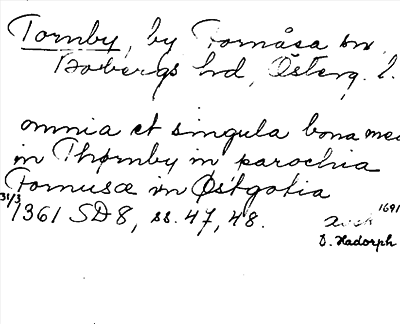 Tornby, by Fornåsa sn,
Bobergs hd, Österg. l.
omnia et singula bona mea
in Thørnby in parochia
Fornusæ in Østgotia
31/3 1361 SD 8, ss. 47, 48.
1691
D. Hadorph